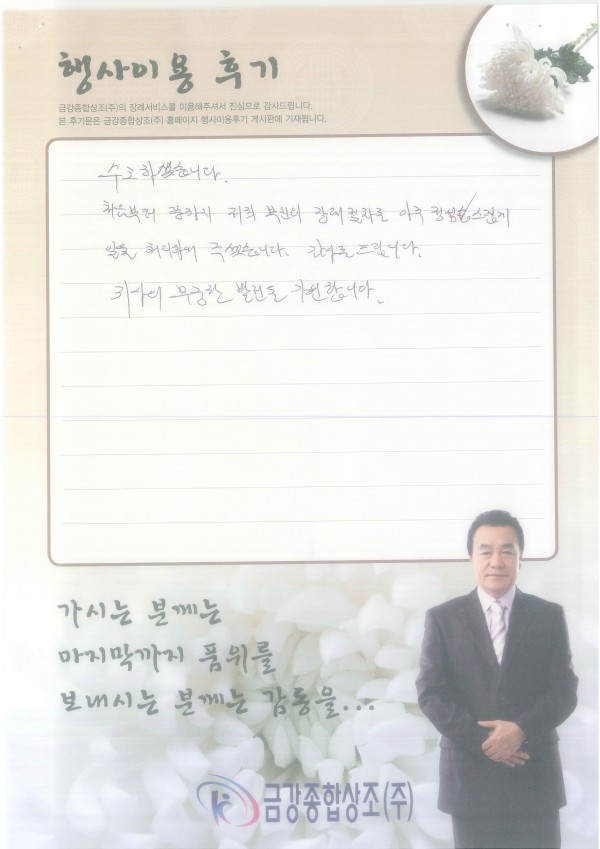 행사이용 후기
금강종합상조(주)의 장례서비스를 이용해주셔서 진심으로 감사드립니다.
본 후기문은 금강종합상조(주) 홈페이지 행사이용후기 게시판에 기재됩니다.
수고하셨습니다.
처음부터 끝까지 저희 부친의 장례절차를 아주 정성스럽게
일을 처리하여 주셨습니다. 감사를 드립니다.
귀사의 무궁한 발전을 기원합니다.
가시는 분께는
마지막까지 품위를
보내시는 분께는 감동을...
금강종합상조(주)